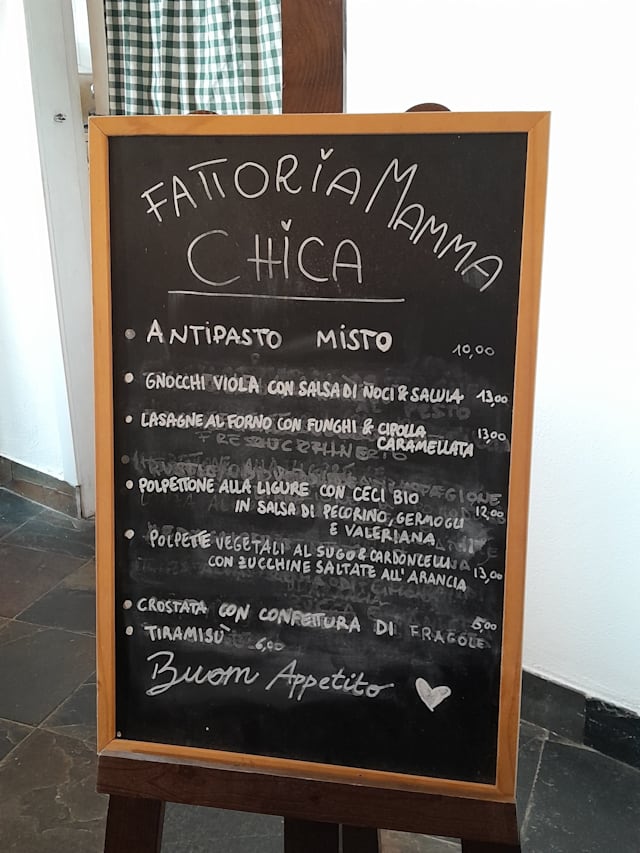 FATTORIA MAMMA
CHICA
ANTIPASTO MISTO 10,00
GNOCCHI VIOLA CON SALSA DI NOCI & SALVIA 13,00
LASAGNE AL FORNO CON FUNGHI & CIPOLLA
CARAMELLATA 13,00
POLPETTONE ALLA LIGURE CON CECI BIO
IN SALSA DI PECORINO, GERMOGLI 12,00
E VALERIANA
POLPETTE VEGETALI AL SUGO & CARDONCELLI
CON ZUCCHINE SALTATE ALL'ARANCIA 13,00
CROSTATA CON CONFETTURA DI FRAGOLE 5,00
TIRAMISÙ 6,00
Buom Appetito